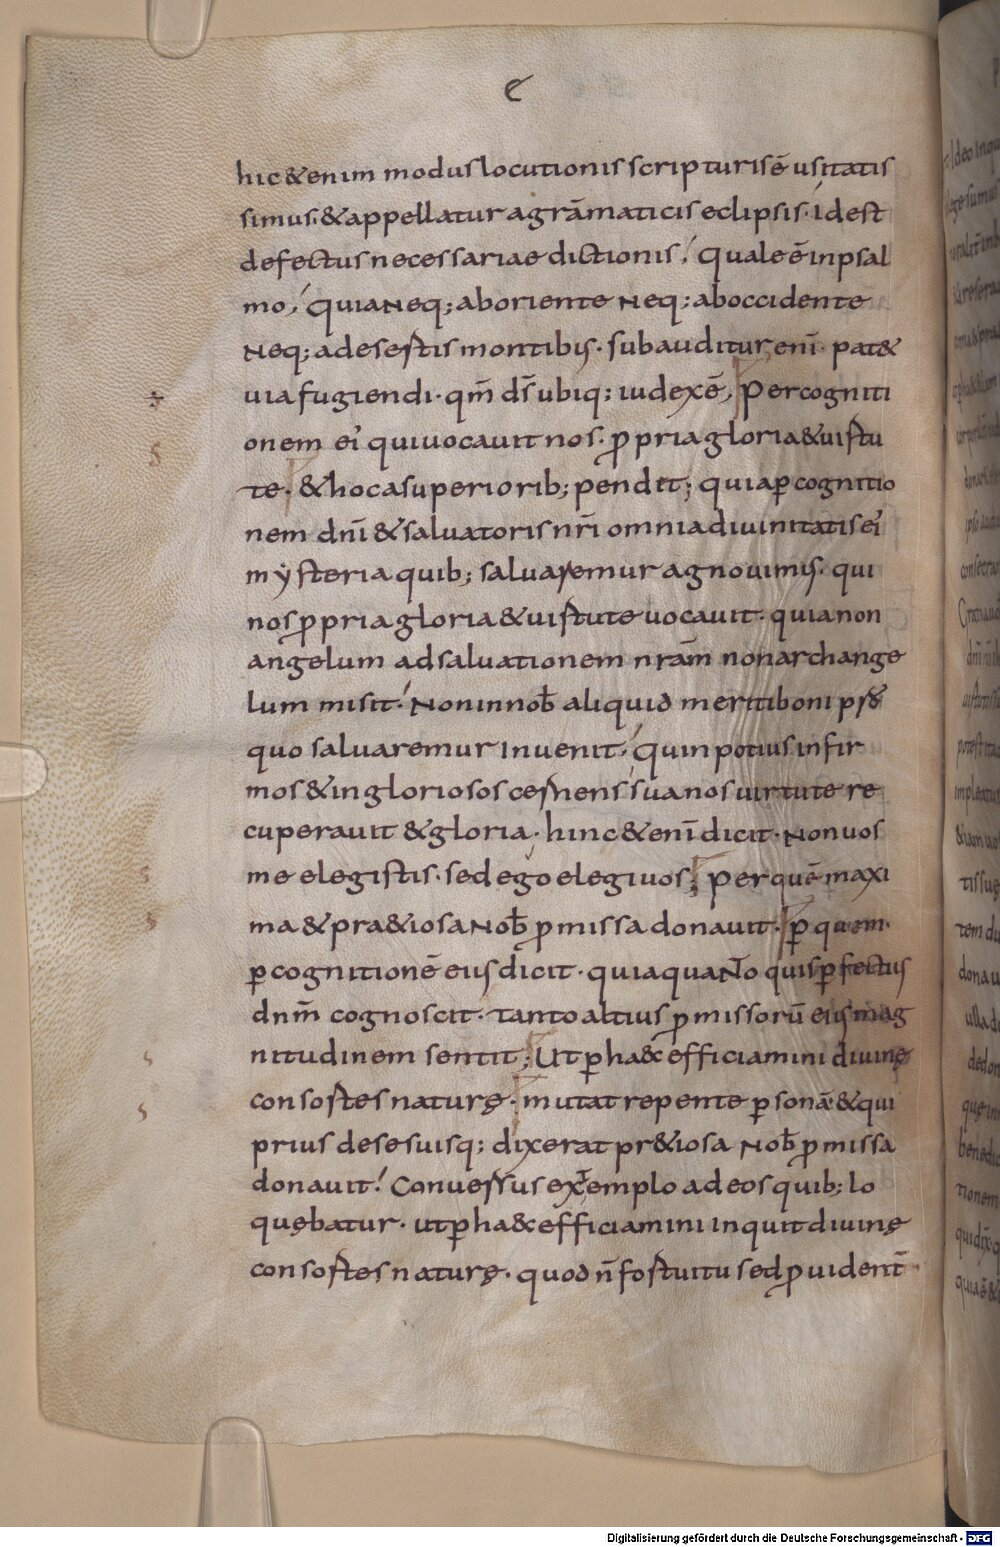 e
hic &enim modus locutionis scripturis ē usitatis
simus· & appellatur a grāmaticis eclipsis· idest
defectus necessariae dictionis, Quale ē inpsal
mo, Quia Neq; ab oriente Neq; ab occidente
Neq; a desertis montibus· subauditur enī· pat&
uia fugiendi· qm̄ ds̄ ubiq; iudex ē, Per cogniti
onem ei' qui uocauit nos· ꝓpria gloria & uirtu
te· & hoc a superiorib; pendet; quia ꝑ cognitio
nem dnī & saluatoris nr̄i omnia diuinitatis ei'
mysteria quib; saluaremur agnouimus· qui
nos ꝓpria gloria & uirtute uocauit· quia non
angelum ad saluationem nram̄ non archange
lum misit· Non in nob̄ aliquid meriti boni
quo saluaremur inuenit· Quin potius infir
mos & ingloriosos cernens sua nos uirtute re
cuperauit & gloria· hinc & enī dicit· Non uos
me elegistis· sed ego elegi uos; Per quē maxi
ma & pra&iosa Nob̄ ꝓmissa donauit· ꝑ quem·
ꝑ cognitionē eius dicit· quia quaNto quis ꝑfectius
dnm̄ cognoscit· tanto altius ꝓmissorū eius mag
nitudinem sentit; Ut ꝑ haec efficiamini diuinę
consortes naturę· mutat repente ꝑsonā· & qui
prius de se suisq; dixerat pr&iosa Nob̄ ꝓmissa
donauit· Conuersus extemplo ad eos quib; lo
quębatur· ut ꝑ haec efficiamini inquit diuinę
consortes naturę· quod n̄ fortuitu sed ꝓuident̄
Digitalisierung gefördert durch die Deutsche Forschungsgemeinschaft - DFG